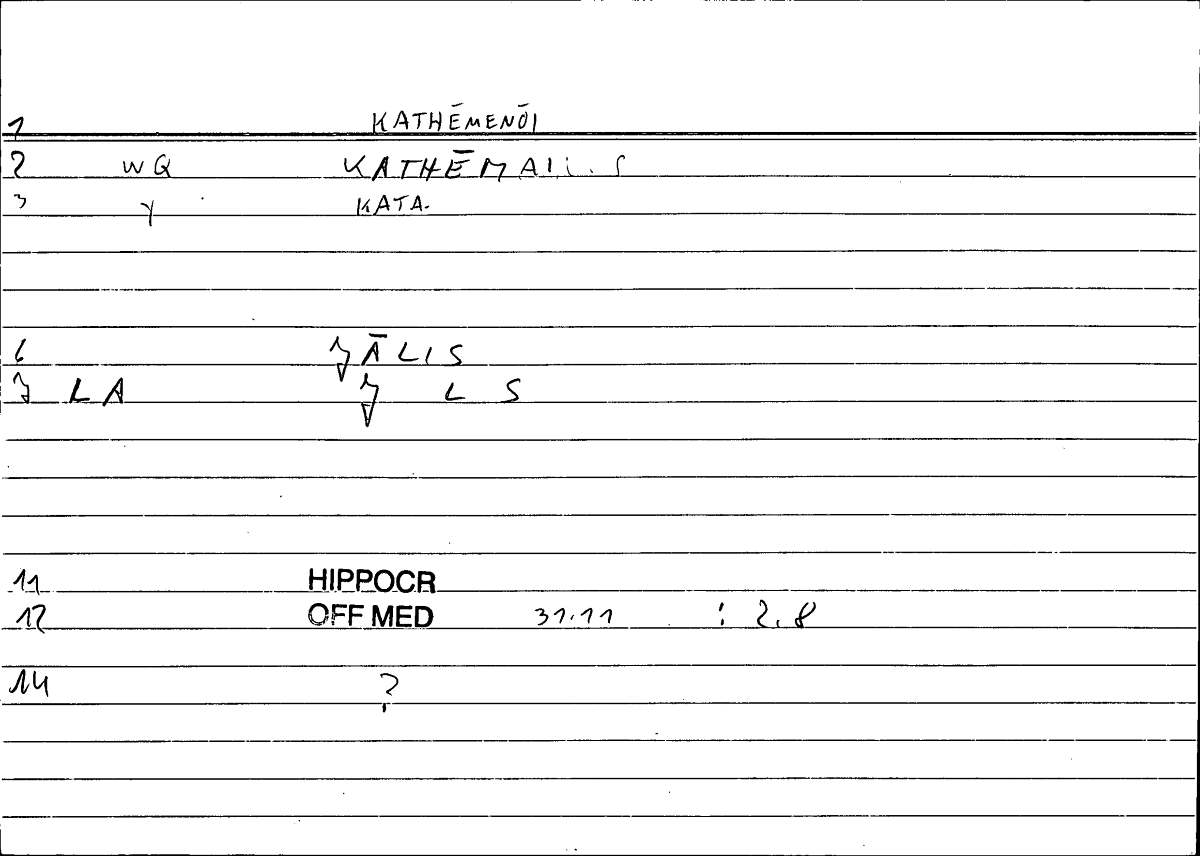 1 KATHĒMENŌI
2 WQ KATHĒMAI
3 Y KATA.
6 ĀLIS
LA L S
11 HIPPOCR
12 OFF MED 31.11 : 2.8
14 ?